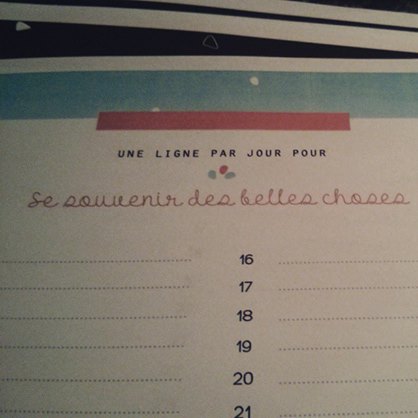 UNE LIGNE PAR JOUR POUR
Se souvenir des belles choses
16
17
18
19
20
21